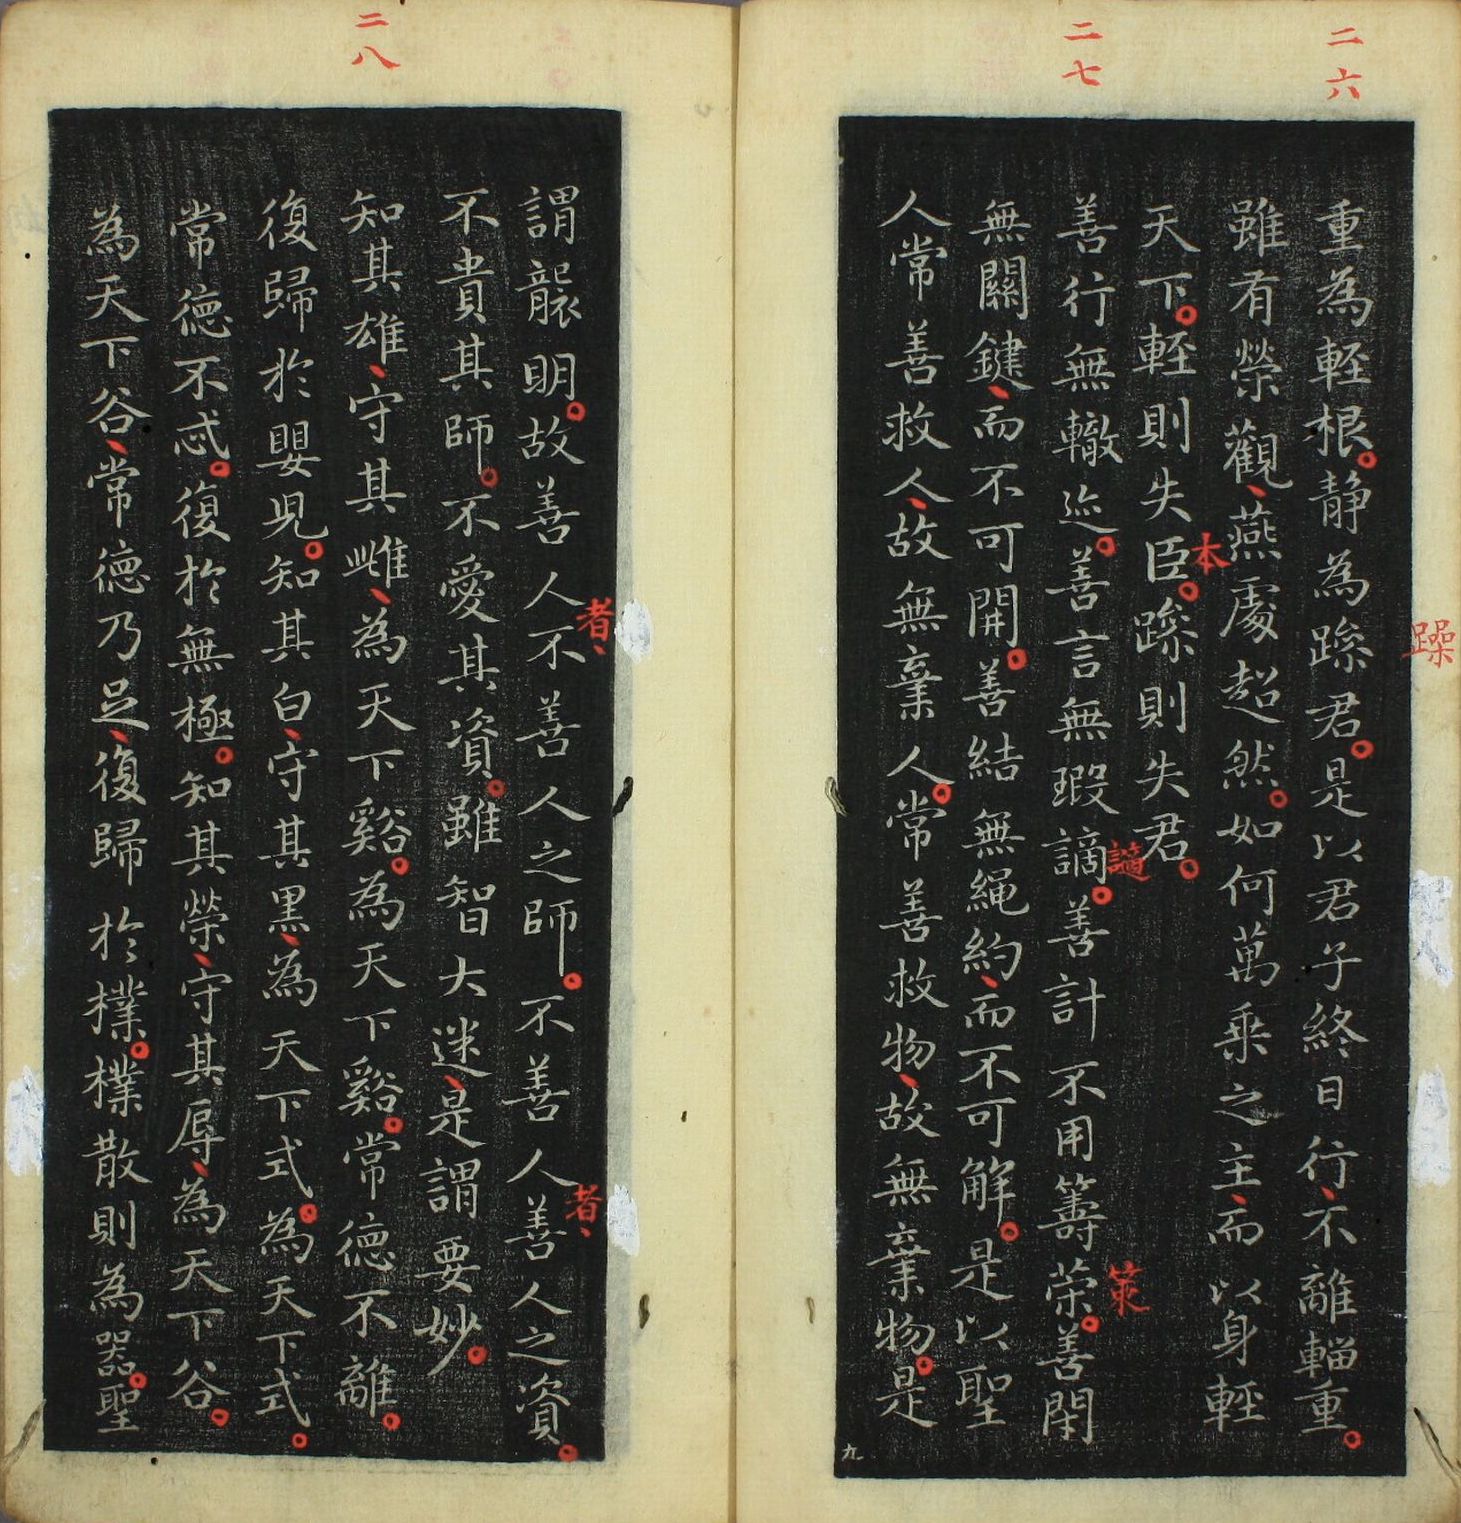 二六
二七
重為輊根。静為𨂍君。是以君子終日行、不離輜重。
躁
雖有榮觀、燕處超然。如何萬乘之主、而以身輊
天下。輊則失臣。𨂍則失君。
本
善行無轍迹。善言無瑕謫。善計不用籌䇿。善閇
謫
策
無關鍵、而不可開。善結無繩約、而不可解。是以聖
人常善救人、故無棄人。常善救物、故無棄物。是
九
二八
謂襲明。故善人不善人之師。不善人善人之資。
者、
者、
不貴其師。不愛其資。雖智大迷、是謂要妙。
知其雄、守其雌、為天下谿。為天下谿。常德不離。
復歸於嬰児。知其白、守其黑、為天下式。為天下式。
常德不忒。復於無極。知其榮、守其辱、為天下谷。
為天下谷、常德乃足、復歸於樸。樸散則為器。聖